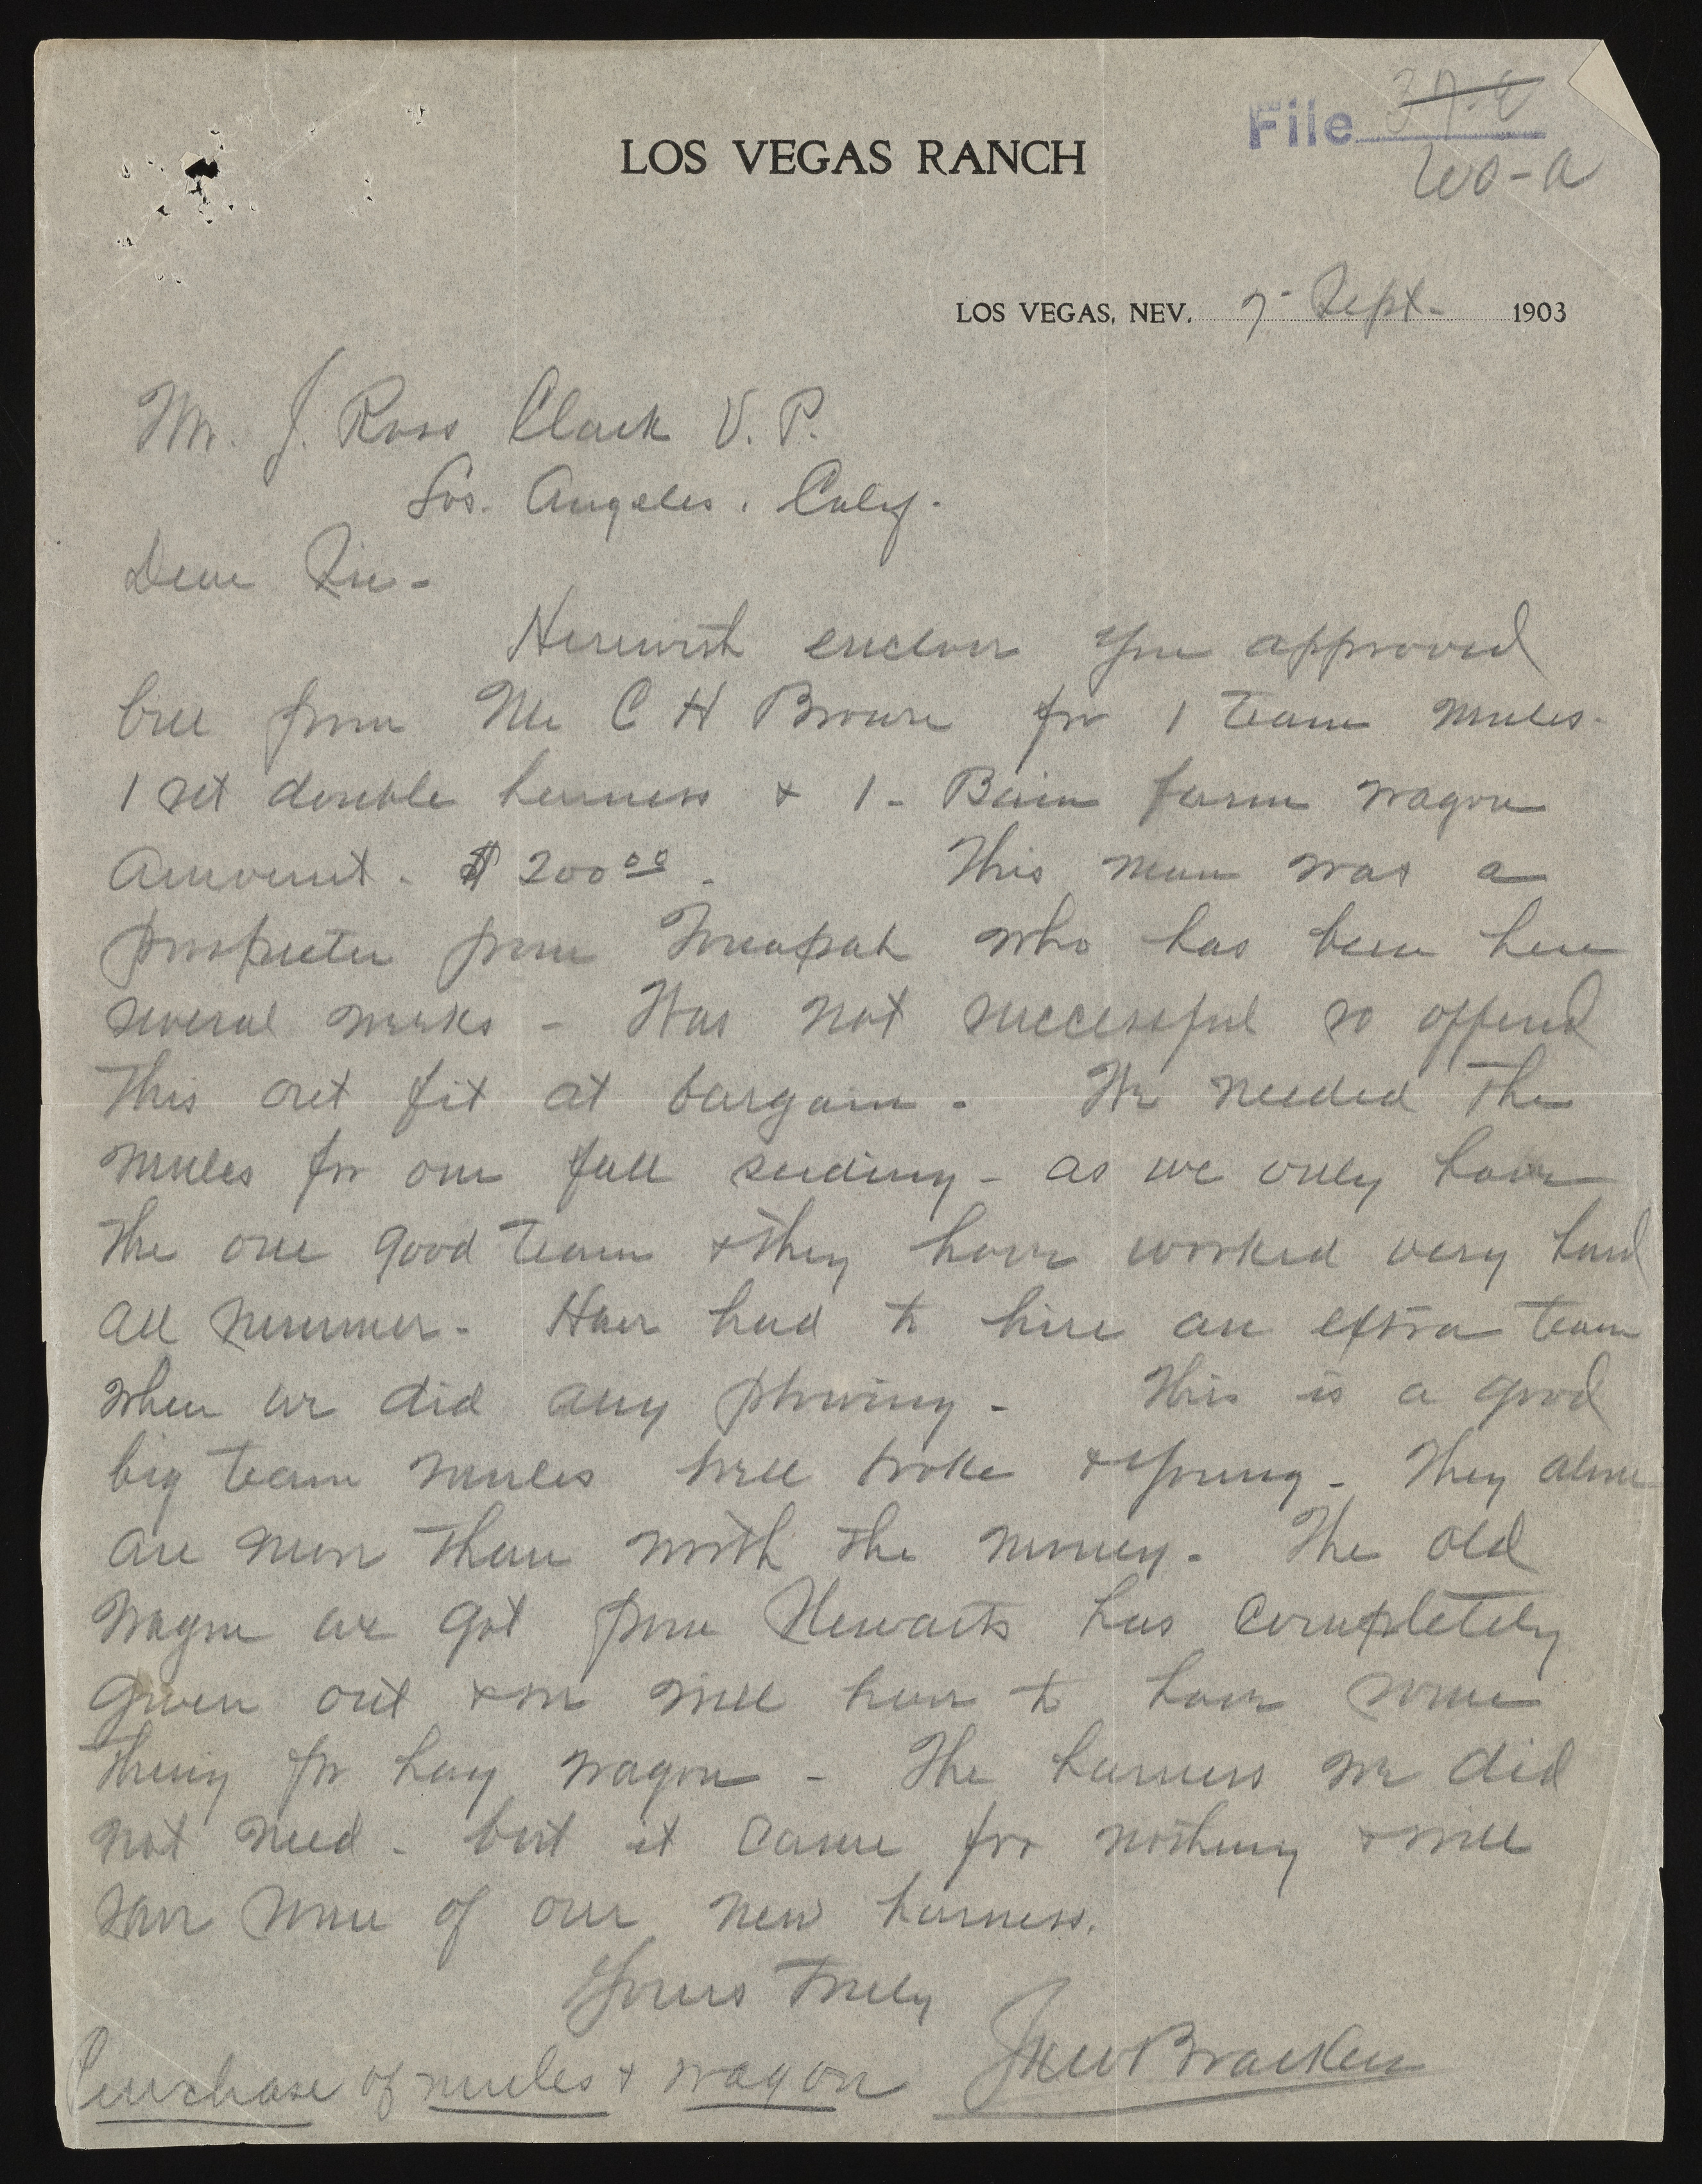 LOS VEGAS RANCH
File 37-C
W0-a
LOS VEGAS, NEV. 7- Sept. 1903
Mr. J. Ross Clark V. P.
Los. Angeles. Calif.
Dear Sir-
Herewith enclose you approved
bill from Mr C H Brown for 1 team mules-
1 set double harness & 1- Bain farm wagon
Amount. $ 200 00. This man was a
prospector from Tonopah who has been here
several weeks - Was not successful so offered
this out fit at bargain - We needed the
mules for our fall seeding - as we only have
the one good team & they have worked very hard
all summer - Have had to hire an extra team
when we did any plowing - This is a good
big team mules well broke & young - They alone
are more than worth the money - The old
wagon we got from Stewarts has completely
given out & we will have to have some
thing for hay wagon - The harness we did
not need - but it came for nothing & will
save some of our new harness.
Yours Truly
Jno W Bracken
Purchase of mules & wagon